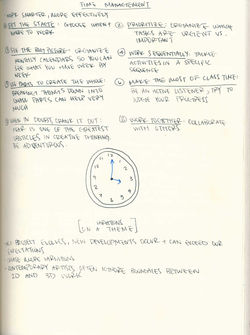 TIME MANAGEMENT
WORK SMARTER, MORE EFFECTIVELY
① SET THE STAGE: CHOOSE WHEN &
WHERE TO WORK
② PRIORITIZE: ORGANIZE WHICH
TASKS ARE URGENT VS.
IMPORTANT
③ SEE THE BIG PICTURE: ORGANIZE
MONTHLY CALENDARS SO YOU CAN
SEE WHAT YOU HAVE WEEK BY
WEEK
④ WORK SEQUENTIALLY:
ACTIVITIES IN A SPECIFIC
SEQUENCE
PARTS TO CREATE THE WHOLE:
BREAKING THINGS DOWN INTO
SMALL PARTS CAN HELP VERY
MUCH
⑥ MAKE THE MOST OF CLASS TIME:
BE AN ACTIVE LISTENER, TRY TO
JUDGE YOUR PROGRESS
WHEN IN DOUBT, CRANK IT OUT:
FEAR IS ONE OF THE GREATEST
OBSTACLES IN CREATIVE THINKING
BE ADVENTUROUS.
⑧ WORK TOGETHER: COLLABORATE
WITH OTHERS
VARIATIONS
[ON A THEME]
PROJECT EVOLVES, NEW DEVELOPMENTS OCCUR & CAN EXCEED OUR
EXPECTATIONS
MORE VARIATIONS
CONTEMPORARY ARTISTS OFTEN IGNORE BOUNDARIES BETWEEN
2D AND 3D WORK